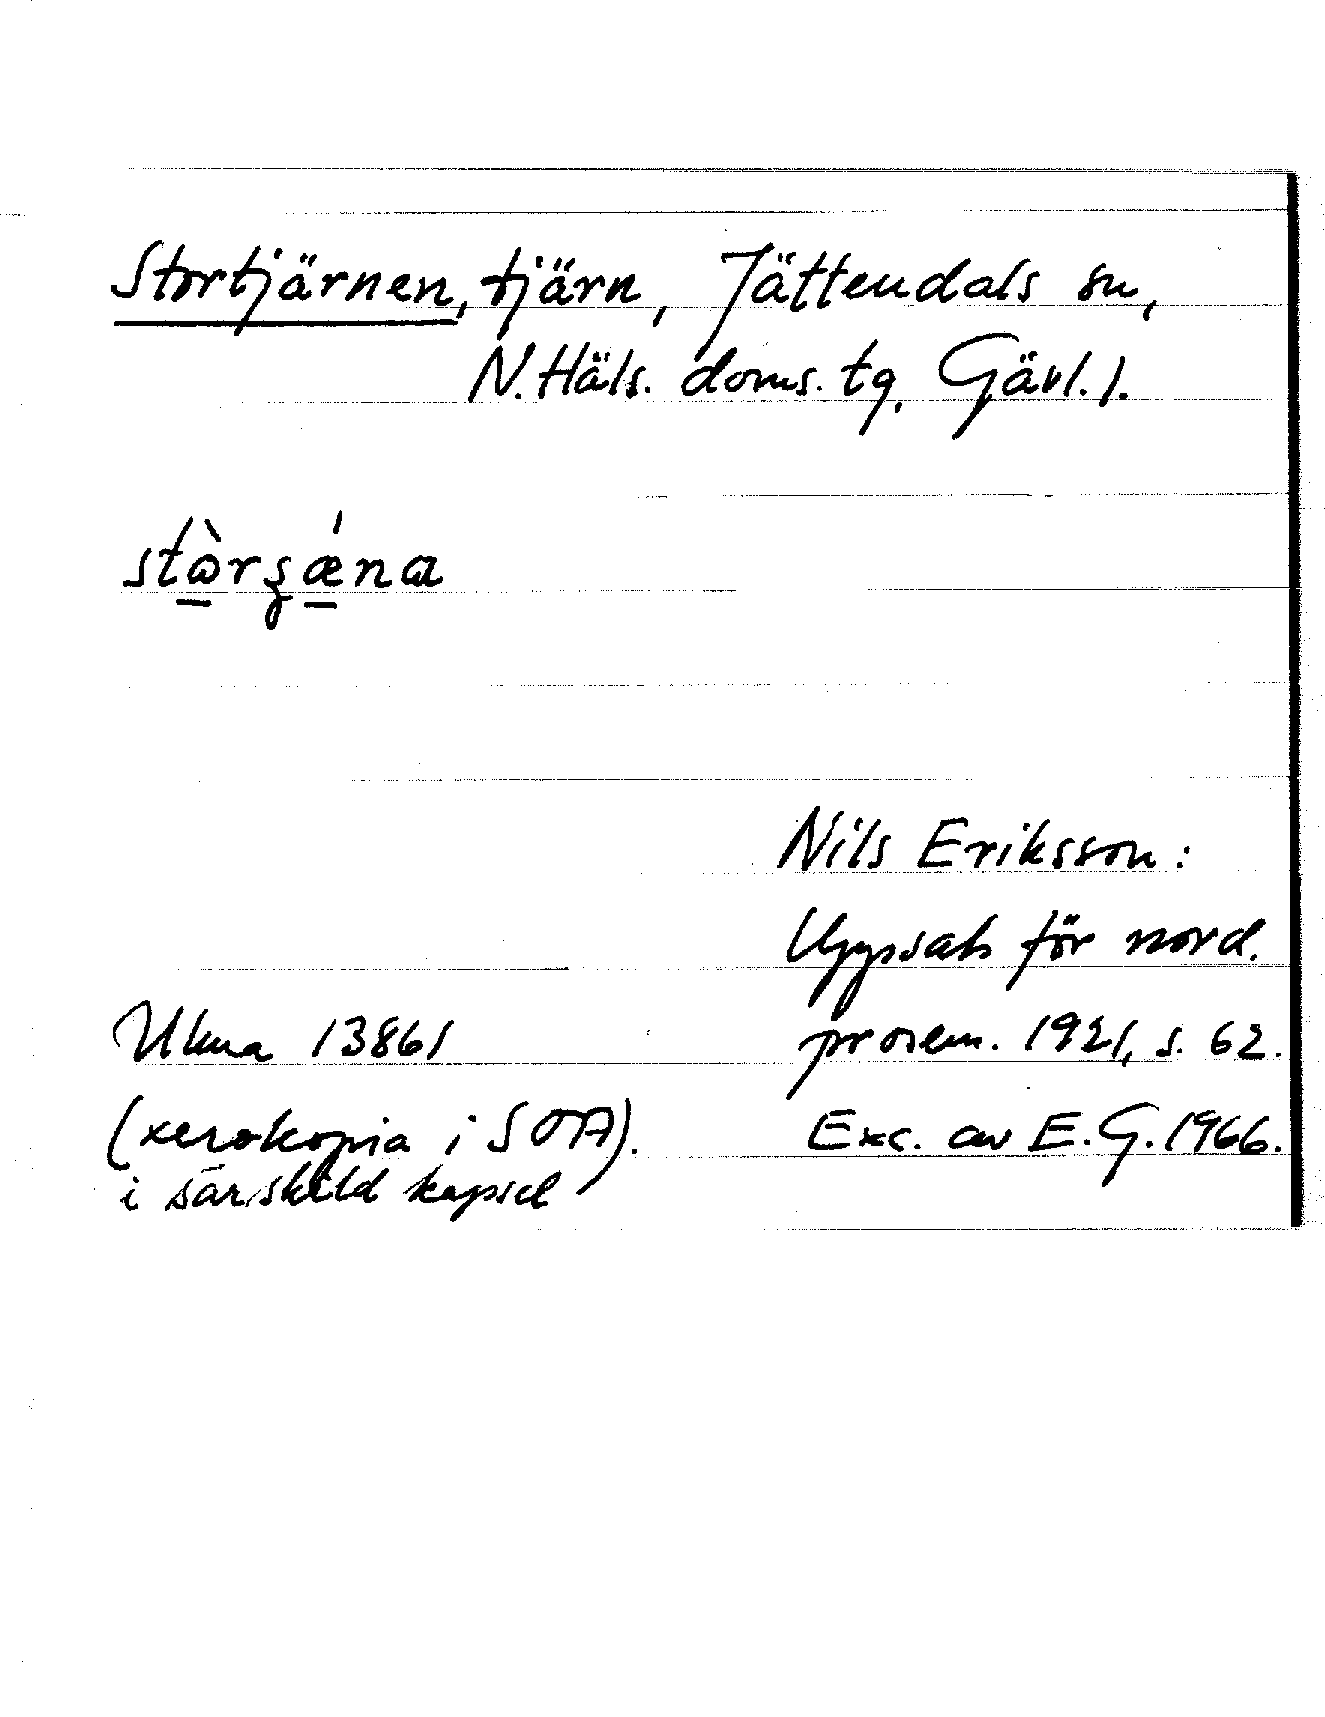 Stortjärnen, tjärn, Jättendals sn,
N. Häls. doms. tg, Gävl. l.
Nils Eriksson:
Uppsats för nord.
Ulma 13861 prosem. 1921, s. 62.
(xerokopia i SOA). Exc. av E. G. 1966.
i särskild kapsel